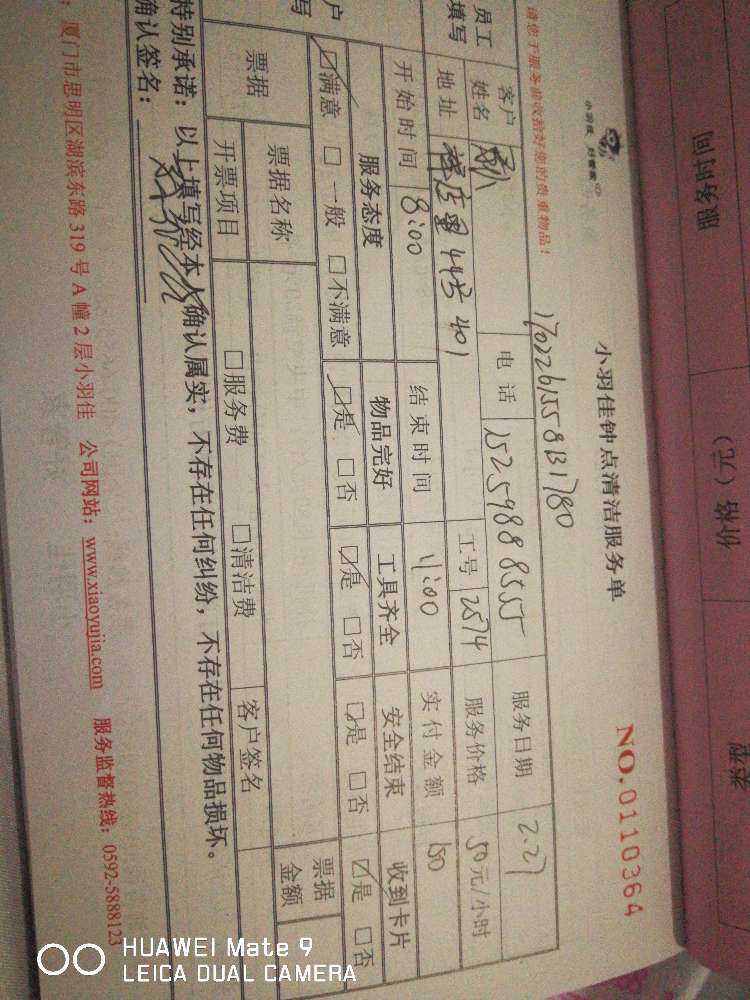 服务时间 价格（元）
小羽佳钟点清洁服务单
NO.0110364
请您于服务前收拾好您的贵重物品！
员工
填写
客户
姓名
电话 15259888555 服务日期 2.27
地址 443 401 工号 2574 服务价格 50元/小时
开始时间 8:00 结束时间 11:00 实付金额 150
户
写
服务态度 物品完好 工具齐全 安全结束 收到卡片
☑满意 □一般 □不满意 ☑是 □否 ☑是 □否 ☑是 □否 ☑是 □否
票据 票据名称 票据
金额
开票项目 □服务费 □清洁费 客户签名
特别承诺：以上填写经本人确认属实，不存在任何纠纷，不存在任何物品损坏。
确认签名：
：厦门市思明区湖滨东路319号A幢2层小羽佳 公司网站：www.xiaoyujia.com 服务监督热线：0592-5888123
HUAWEI Mate 9
LEICA DUAL CAMERA